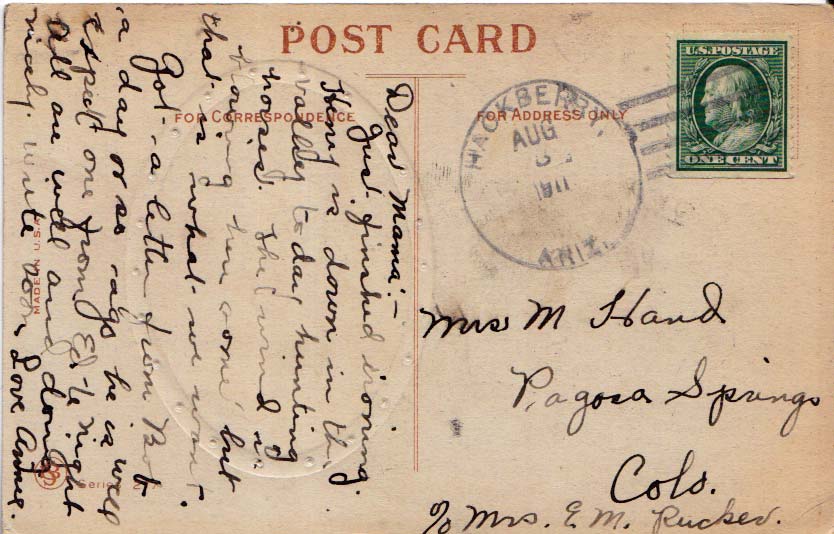 POST CARD
FOR CORRESPONDENCE
FOR ADDRESS ONLY
Dear Mama:-
Just finished ironing.
Hony is down in the
valley to day hunting
horses. The wind is
some but
that is what we want.
Got a letter from Bot
a day or so ago he is well
expect one from Ed to night
All are well and doing
nicely. Write soon Love Annie.
MADE IN U.S.A.
Series
HACKBERRY,
AUG
1911
ARIZ.
U.S. POSTAGE
ONE CENT
Mrs M Hand
Pagosa Springs
Colo.
c/o Mrs. E. M. Rucker.